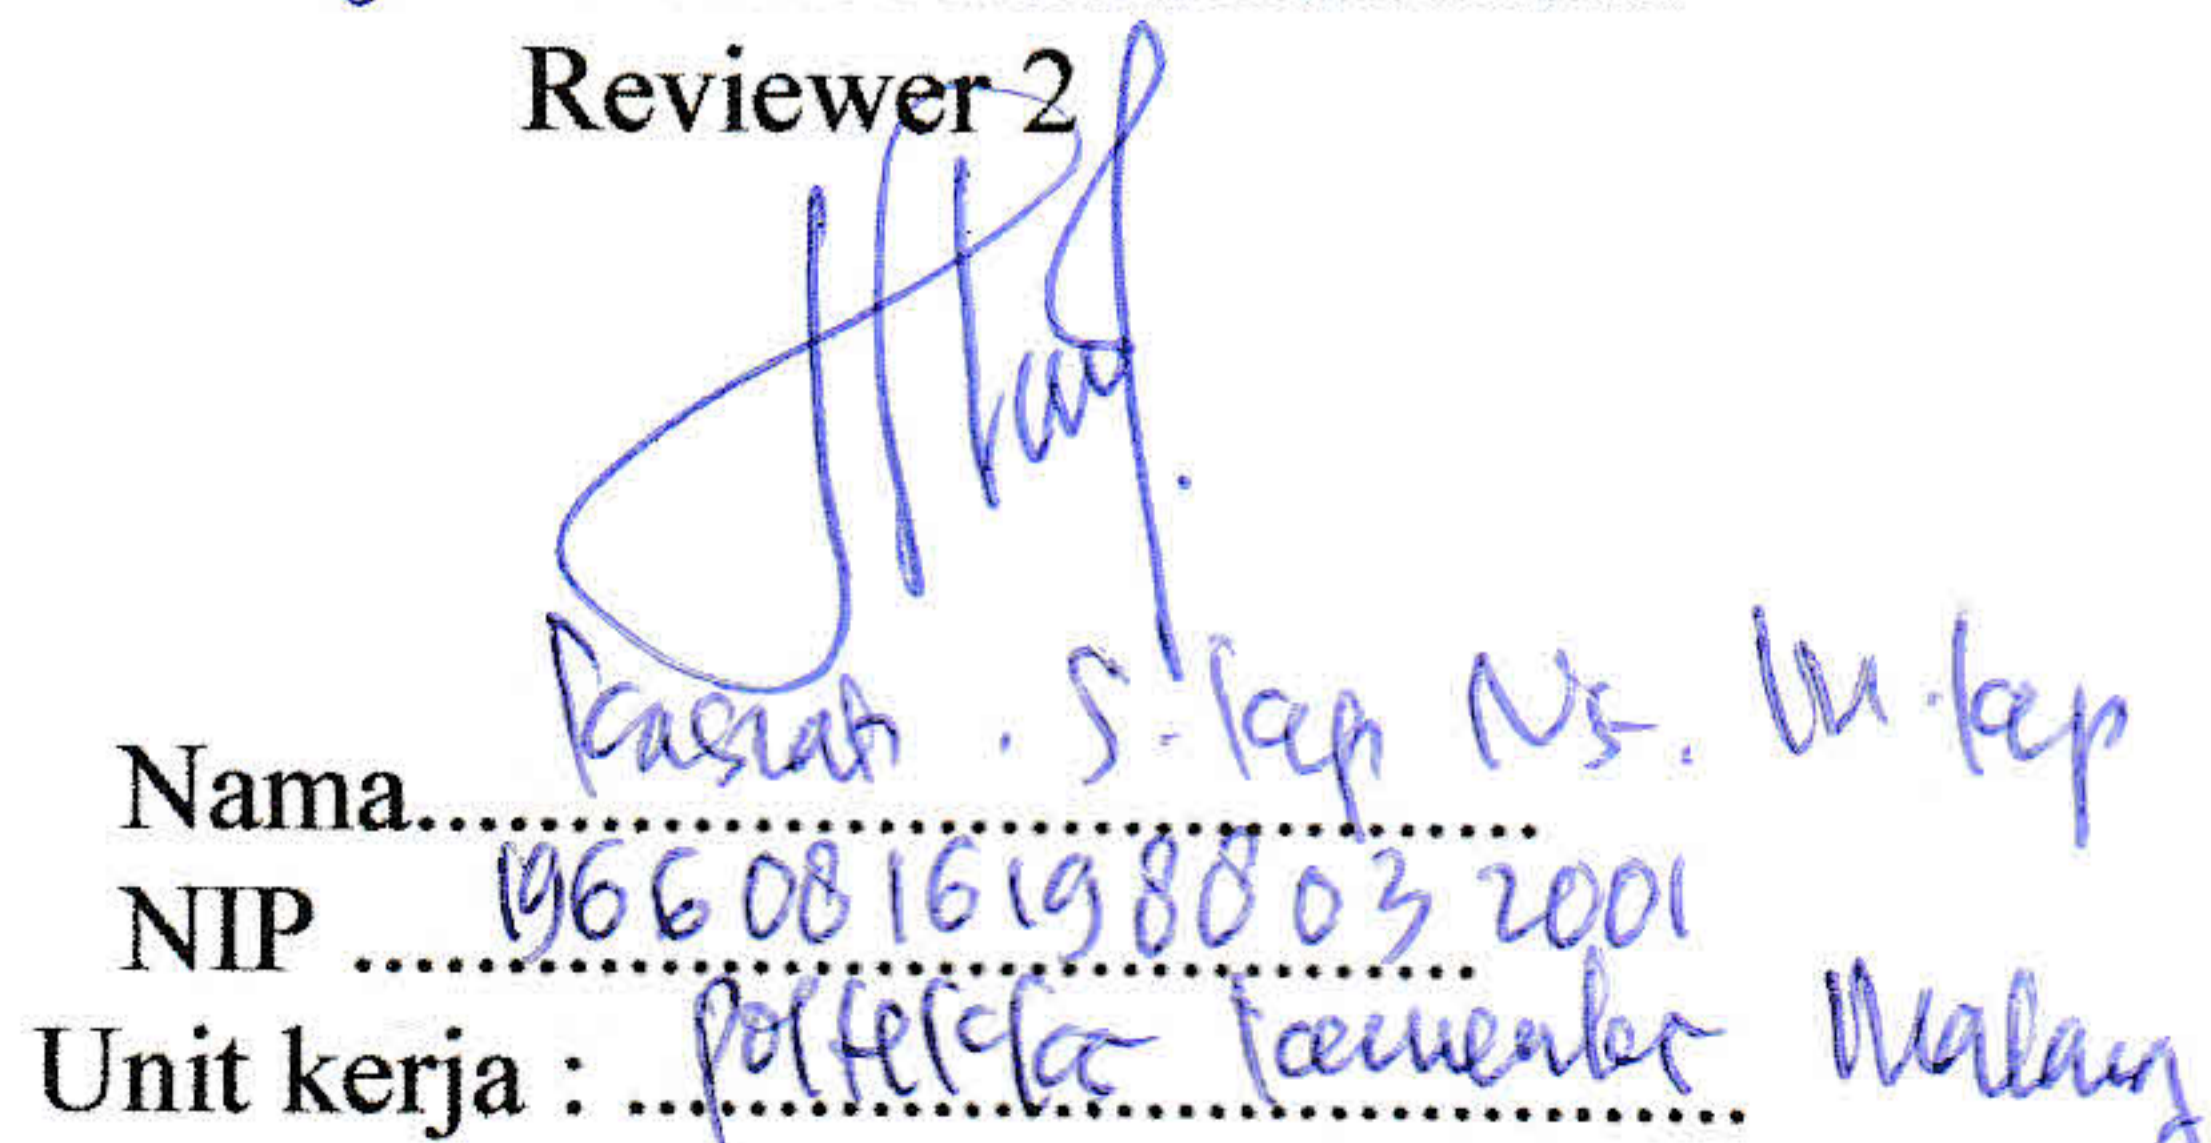 Reviewer 2
Kasiati . S. Kep Ns. M. Kep
Nama..............................
NIP .......... 196608161988032001
Unit kerja : Poltekkes Kemenkes Malang